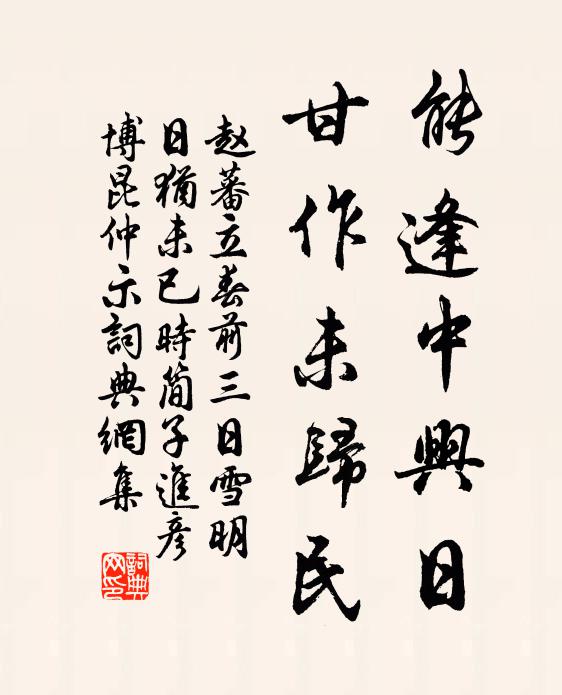 能逢中興日
甘作未歸民
赵蕃立春前三日雪明
日猶未已時简子進彥
博昆仲示詞典網集
詞典
网印